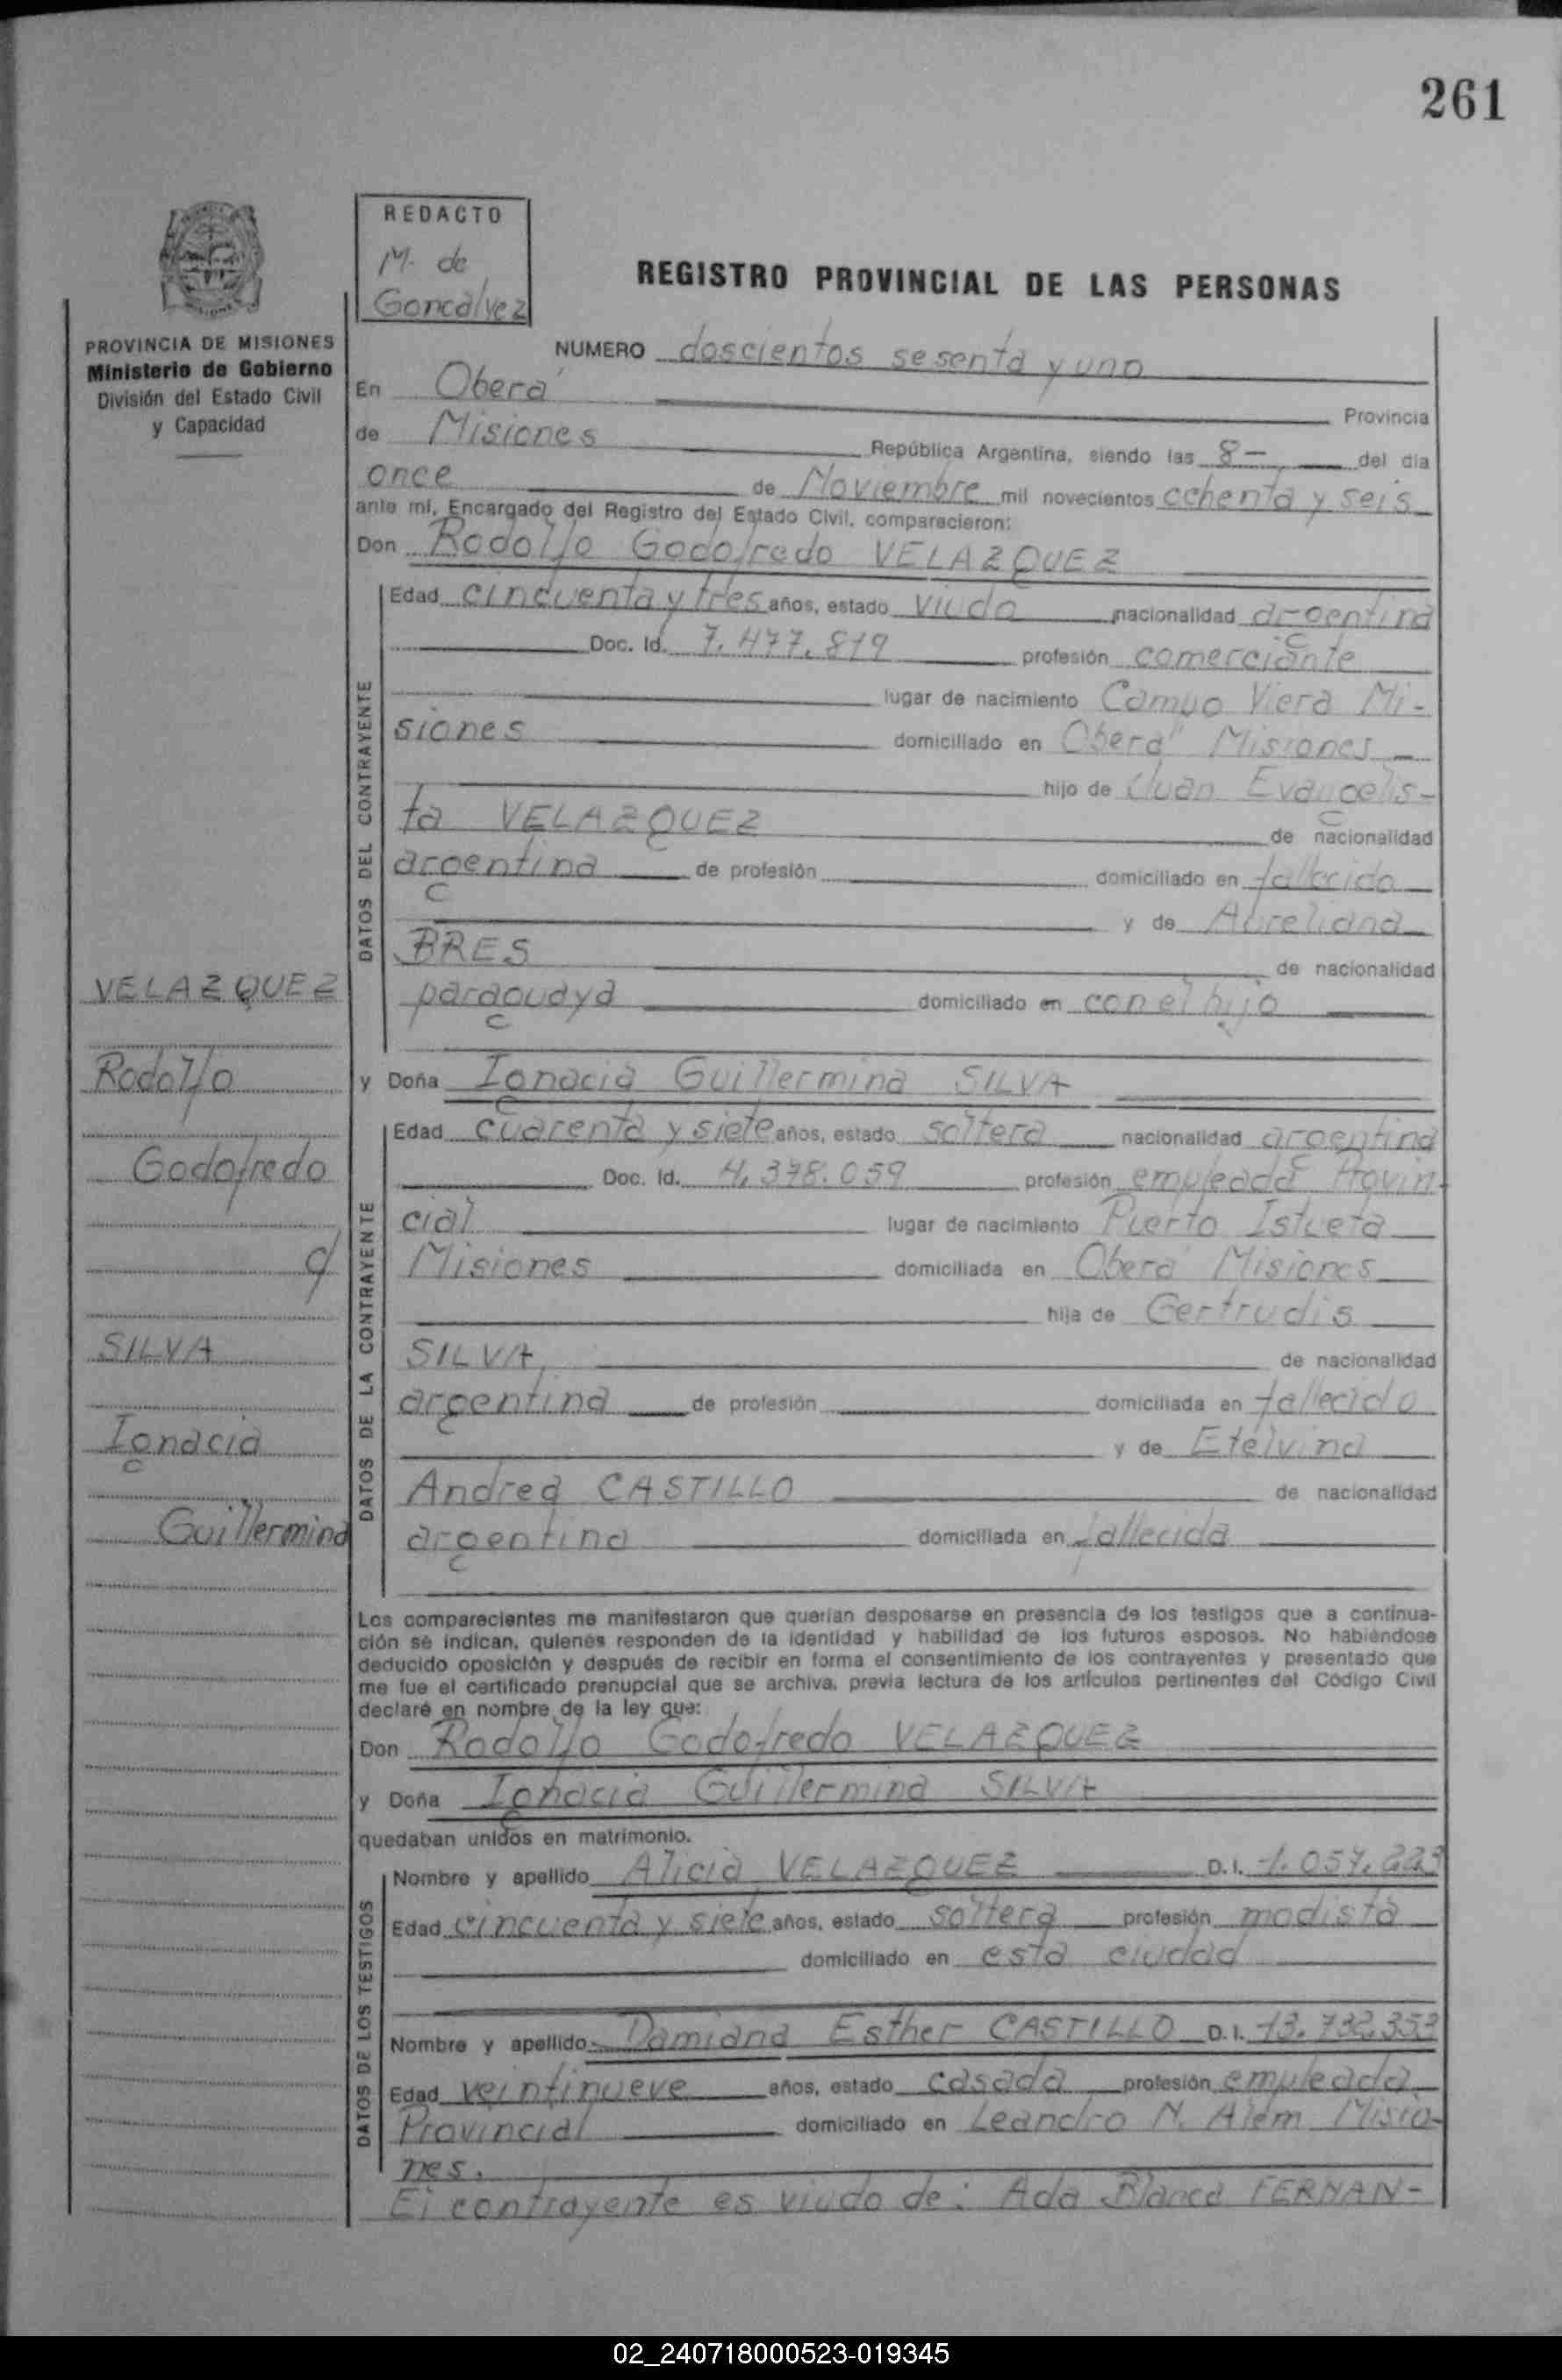 261
REDACTO
M. de
Goncalvez
REGISTRO PROVINCIAL DE LAS PERSONAS
PROVINCIA DE MISIONES
Ministerio de Gobierno
División del Estado Civil
y Capacidad
NUMERO doscientos sesenta y uno
En Oberá Provincia
de Misiones República Argentina, siendo las 8- del día
once de Noviembre mil novecientos ochenta y seis
ante mí, Encargado del Registro del Estado Civil, comparecieron:
Don Rodolfo Godofredo VELAZQUEZ
DATOS DEL CONTRAYENTE
Edad cincuenta y tres años, estado viudo nacionalidad argentina
Doc. Id. 7.477.819 profesión comerciante
lugar de nacimiento Campo Viera Mi-
siones domiciliado en Oberá Misiones
hijo de Juan Evangelis-
ta VELAZQUEZ de nacionalidad
argentina de profesión domiciliado en fallecido
y de Aureliana
BRES de nacionalidad
paraguaya domiciliado en con el hijo
VELAZQUEZ
Rodolfo
Godofredo
c/
SILVA
Ignacia
Guillermina
y Doña Ignacia Guillermina SILVA
DATOS DE LA CONTRAYENTE
Edad cuarenta y siete años, estado soltera nacionalidad argentina
Doc. Id. 4.378.059 profesión empleada Provin-
cial lugar de nacimiento Puerto Istueta
Misiones domiciliada en Oberá Misiones
hija de Gertrudis
SILVA de nacionalidad
argentina de profesión domiciliada en fallecido
y de Etelvina
Andrea CASTILLO de nacionalidad
argentina domiciliada en fallecida
Los comparecientes me manifestaron que querían desposarse en presencia de los testigos que a continua-
ción se indican, quienes responden de la identidad y habilidad de los futuros esposos. No habiéndose
deducido oposición y después de recibir en forma el consentimiento de los contrayentes y presentado que
me fue el certificado prenupcial que se archiva, previa lectura de los artículos pertinentes del Código Civil
declaré en nombre de la ley que:
Don Rodolfo Godofredo VELAZQUEZ
y Doña Ignacia Guillermina SILVA
quedaban unidos en matrimonio.
DATOS DE LOS TESTIGOS
Nombre y apellido Alicia VELAZQUEZ D.I. 1.057.223
Edad cincuenta y siete años, estado soltera profesión modista
domiciliado en esta ciudad
Nombre y apellido Damiana Esther CASTILLO D.I. 13.732.353
Edad veintinueve años, estado casada profesión empleada
Provincial domiciliado en Leandro N. Alem Misio-
nes.
El contrayente es viudo de: Ada Blanca FERNAN-
02_240718000523-019345